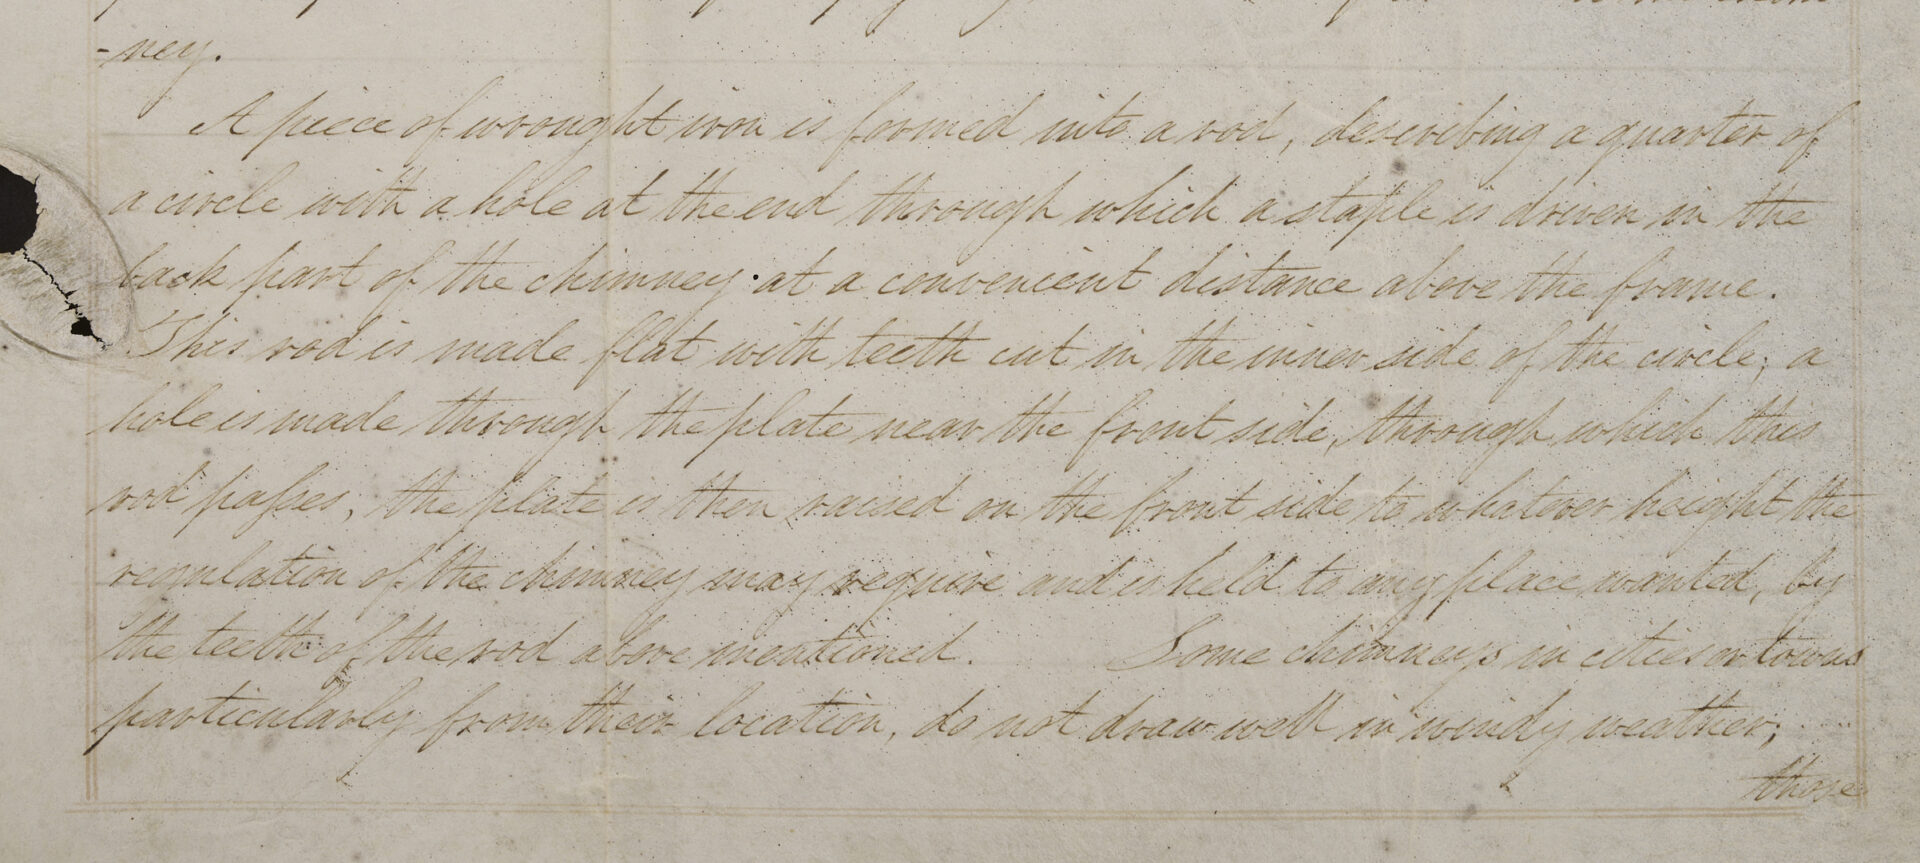 -ney.
A piece of wrought iron is formed into a rod, describing a quarter of
a circle with a hole at the end through which a staple is driven in the
back part of the chimney at a convenient distance above the frame.
This rod is made flat with teeth cut in the inner side of the circle; a
hole is made through the plate near the front side, through which this
rod passes, the plate is then raised on the front side to whatever height the
regulation of the chimney may require and is held to any place wanted, by
the teeth of the rod above mentioned. Some chimneys in cities or towns
particularly from their location, do not draw well in windy weather;
those